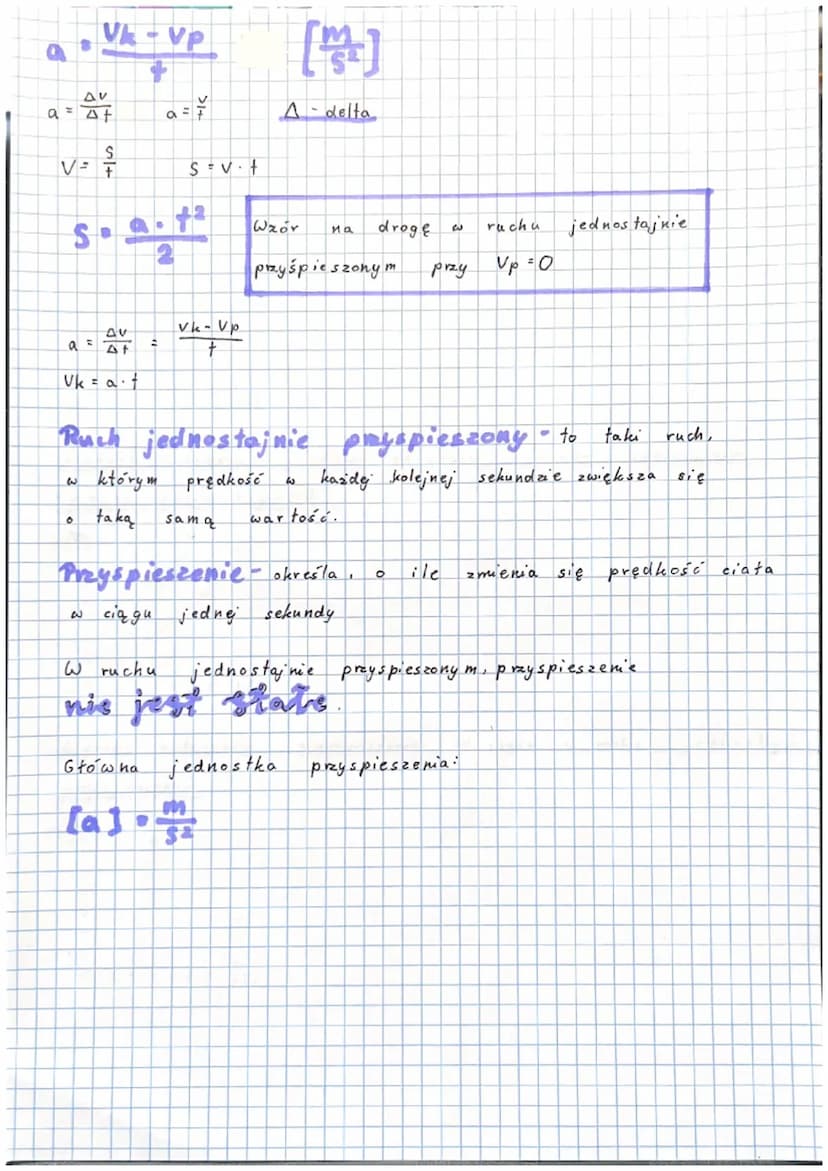 a = Vk - Vp / t [m/s²]
a = ΔV/Δt a = V/t Δ - delta
V = S/t S = V · t
S = a · t²/2
Wzór na drogę w ruchu jednostajnie
przyśpieszonym przy Vp = 0
a = ΔV/Δt = Vk - Vp / t
Vk = a · t
Ruch jednostajnie przyspieszony - to taki ruch,
w którym prędkość w każdej kolejnej sekundzie zwiększa się
o taką samą wartość.
Przyspieszenie - określa, o ile zmienia się prędkość ciała
w ciągu jednej sekundy
W ruchu jednostajnie przyspieszonym, przyspieszenie
nie jest stałe.
Główna jednostka przyspieszenia:
[a] = m/s²